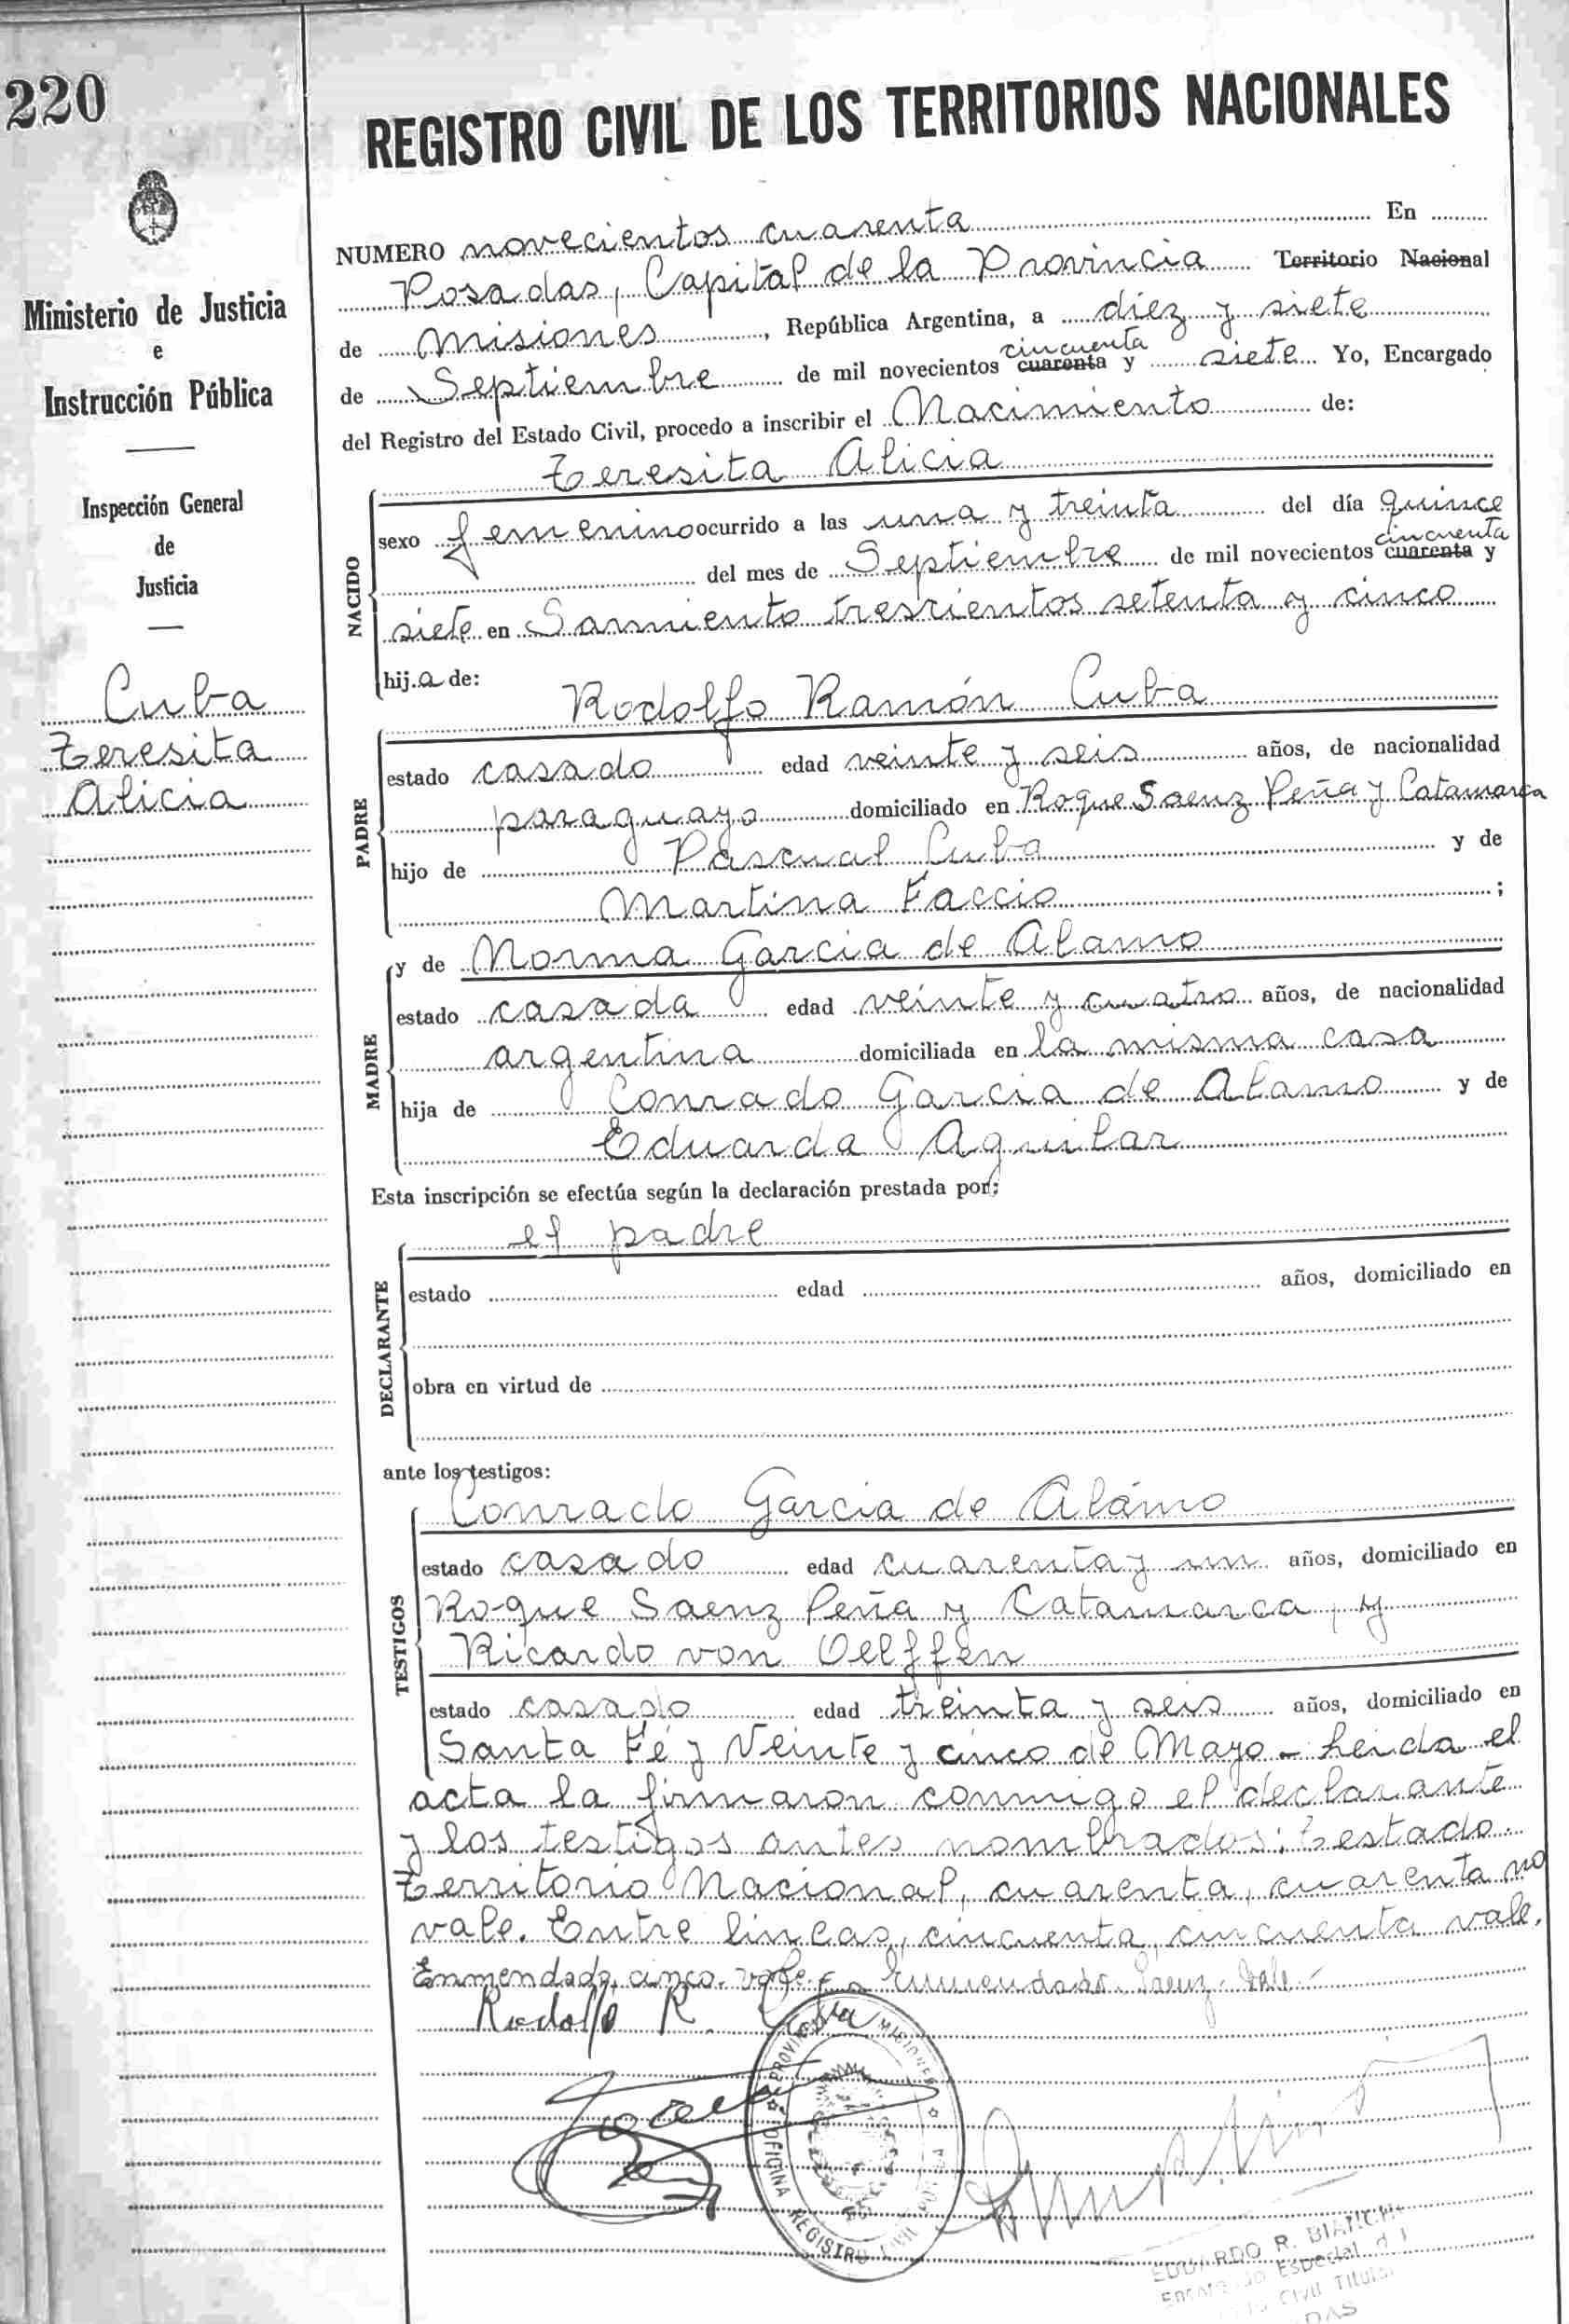 220
REGISTRO CIVIL DE LOS TERRITORIOS NACIONALES
Ministerio de Justicia
e
Instrucción Pública
Inspección General
de
Justicia
Cuba
Teresita
Alicia
NUMERO novecientos cuarenta En
Posadas, Capital de la Provincia Territorio Nacional
de Misiones, República Argentina, a diez y siete
cincuenta
de Septiembre de mil novecientos cuarenta y siete Yo, Encargado
del Registro del Estado Civil, procedo a inscribir el Nacimiento de:
Teresita Alicia
NACIDO
sexo femenino ocurrido a las una y treinta del día quince
cincuenta
del mes de Septiembre de mil novecientos cuarenta y
siete en Sarmiento trescientos setenta y cinco
hija de:
Rodolfo Ramón Cuba
PADRE
estado casado edad veinte y seis años, de nacionalidad
paraguayo domiciliado en Roque Saenz Peña y Catamarca
hijo de Pascual Cuba y de
Martina Faccio;
MADRE
y de Norma Garcia de Alamo
estado casada edad veinte y cuatro años, de nacionalidad
argentina domiciliada en la misma casa
hija de Conrado Garcia de Alamo y de
Eduarda Aguilar
Esta inscripción se efectúa según la declaración prestada por:
el padre
DECLARANTE
estado edad años, domiciliado en
obra en virtud de
ante los testigos:
Conrado Garcia de Alámo
TESTIGOS
estado casado edad cuarenta y un años, domiciliado en
Roque Saenz Peña y Catamarca, y
Ricardo von Oelffen
estado casado edad treinta y seis años, domiciliado en
Santa Fé y Veinte y cinco de Mayo - Leida el
acta la firmaron conmigo el declarante
y los testigos antes nombrados: Testado.
Territorio Nacional, cuarenta, cuarenta no
vale. Entre lineas, cincuenta, cincuenta vale.
Enmendado, cinco. vale. - Enmendado. Saenz. Vale. -
Rodolfo R. Cuba
PROVINCIA MISIONES
OFICINA REGISTRO CIVIL
EDUARDO R. BIANCHI
Especial
Civil Titular